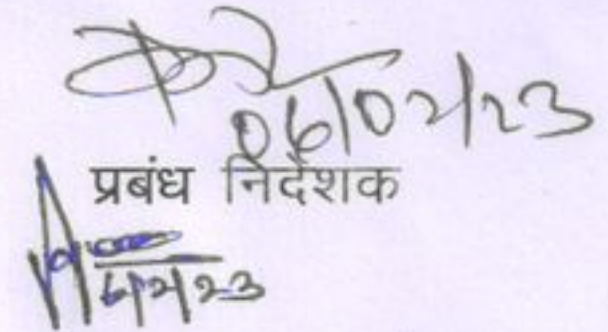 06/02/23
प्रबंध निर्देशक
6/2/23